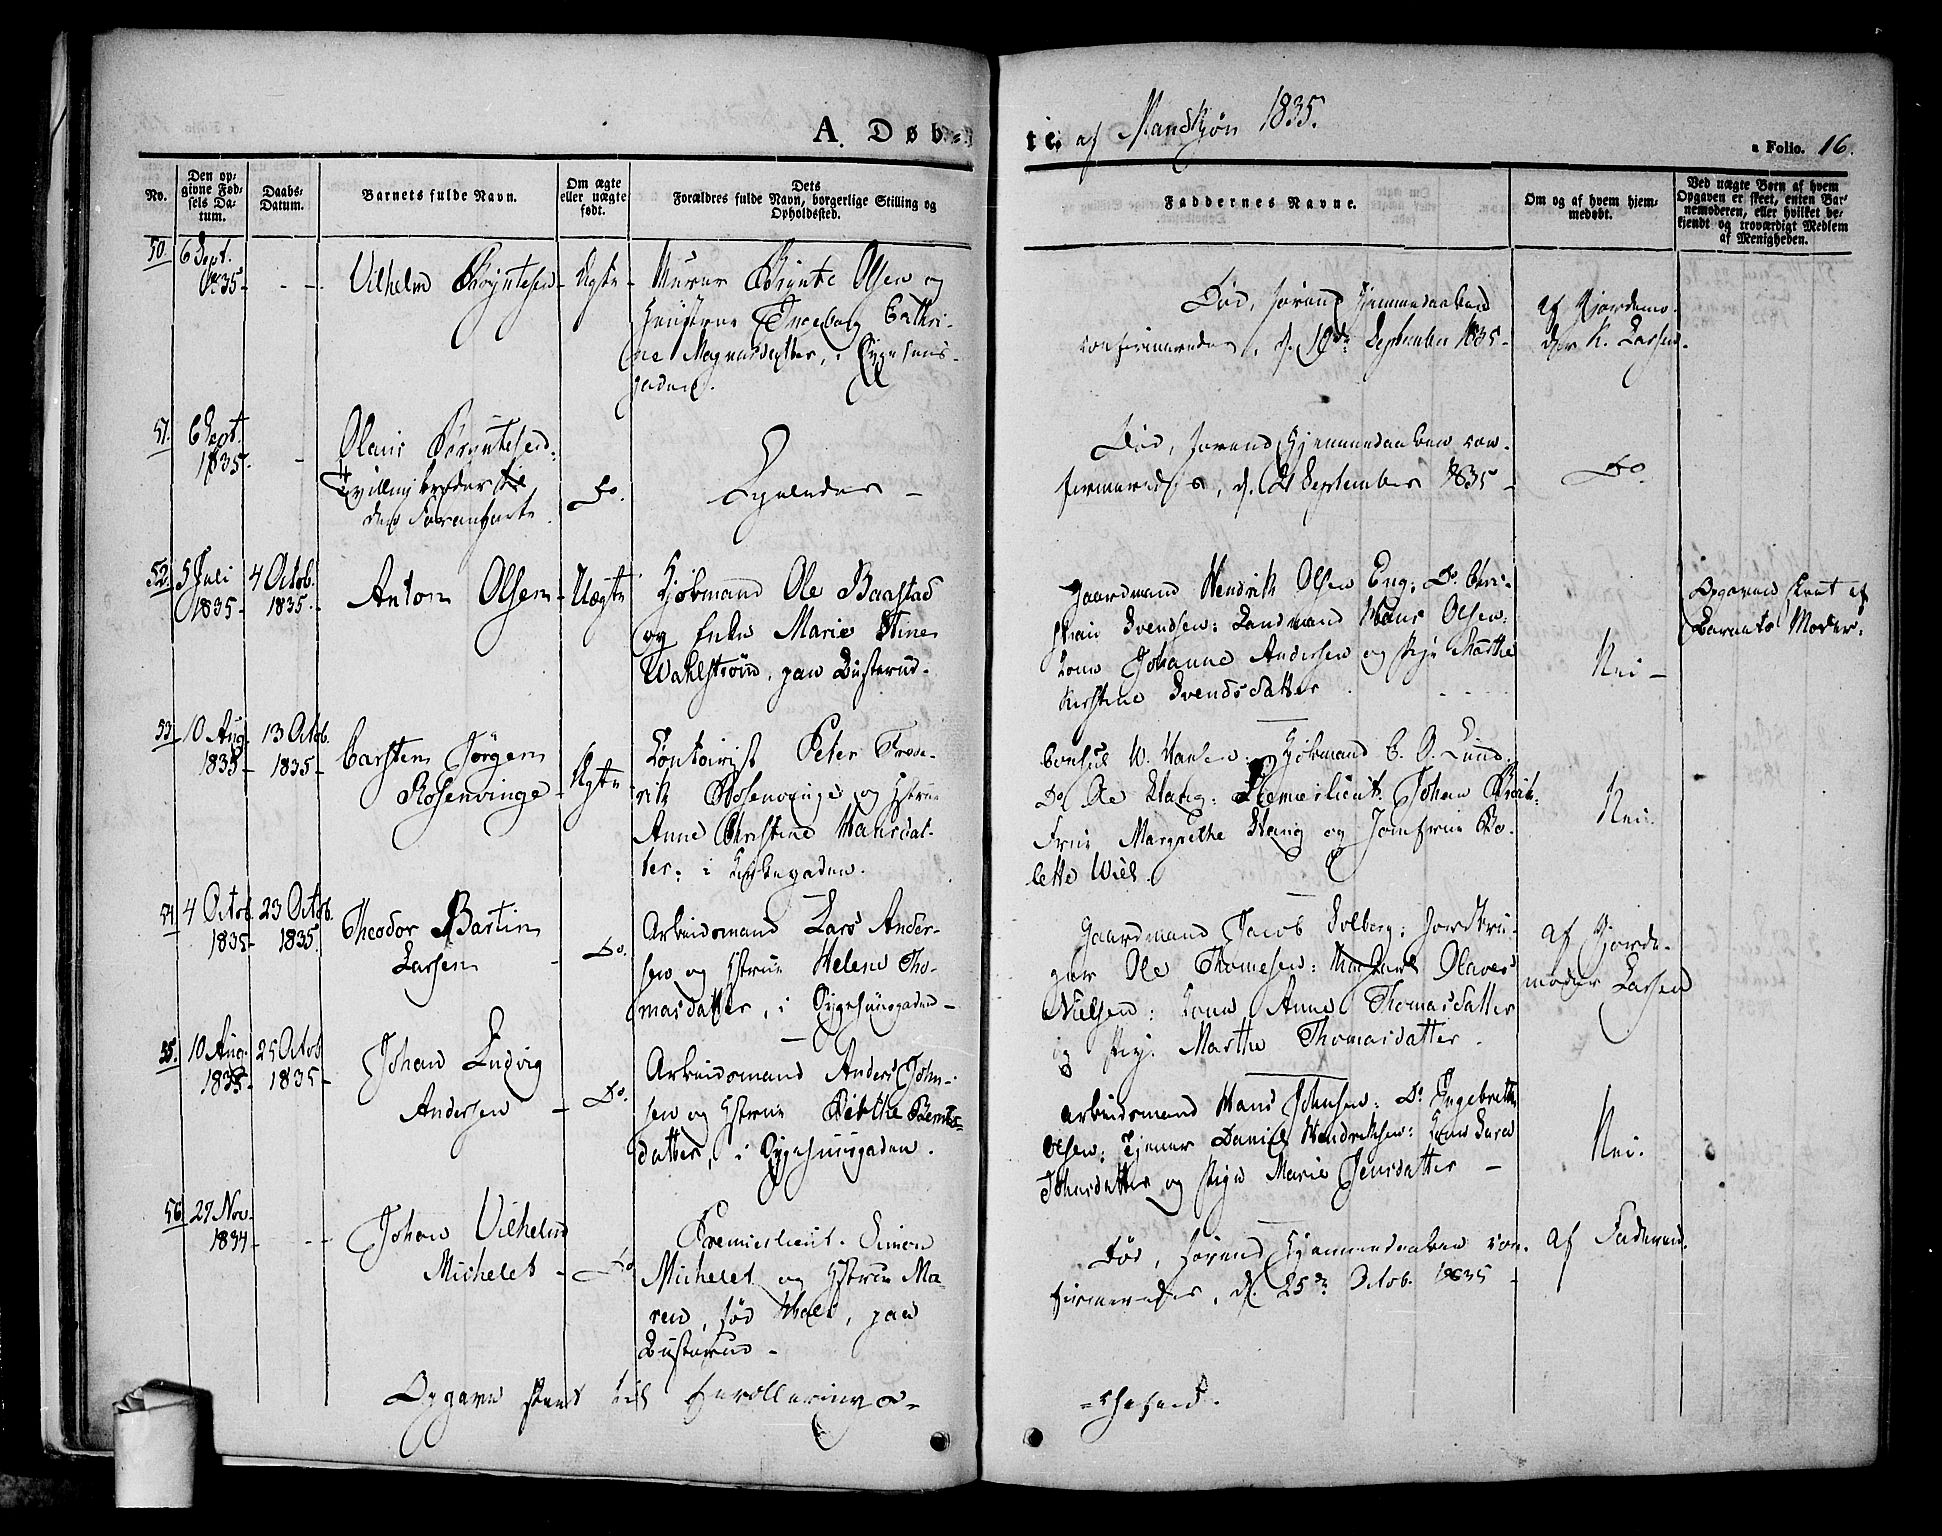 A. Døb=
te af Mandkjøn 1835.
Folio. 16.
No.
Den op-
givne Fød-
sels Da-
tum.
Daabs-
Datum.
Barnets fulde Navn.
Om ægte
eller uægte
født.
Dets
Forældres fulde Navn, borgerlige Stilling og
Opholdssted.
Faddernes Navne.
Om og af hvem hjem-
medøbt.
Ved uægte Børn af hvem
Opgaven er skeet, enten Bar-
nemoderen, eller hvilket be-
kjendt og troværdigt Medlem
af Menigheden.
50.
6 Sept.
1835-
Vilhelm Bryntesen-
Ægte-
Murer Brynte Olsen og
Hustrue Ingeborg Cathri-
ne Magnusdatter, i Sygehuus-
gaden.
Død, førend Hjemmedaaben
confirmeredes, d. 10de September 1835-
af Gjordemo-
der K. Larsen.
51.
6 Sept.
1835.
Olaus Bryntesen,
Tvillingbroder til
den Foranførte.
Do.
Ligeledes -
Død, førend Hjemmedaaben con-
firmeredes, d. 21 September 1835-
Do
52.
5 Juli
1835-
4 Octob.
1835-
Anton Olsen-
Uægte
Kjøbmand Ole Baastad
og Enke Marie Stine
Wahlstrøm, paa Busterud.
Gaardmand Hendrik Olsen Eng: Do Chri-
stian Svendsen: Landmand Hans Olsen:
Kone Johanne Andersen og Pige Marthe
Kirstine Svendsdatter.
Nei-
Opgaven skeet af
Barnets Moder.
53-
10 Aug.
1835-
13 Octob.
1835-
Carsten Jørgen
Rosenvinge-
Ægte
Contoirist Peter Frede-
rik Rosenvinge og Hstrue
Anne Christine Hansdat-
ter: i Kirkegaden.
Consul W. Hansen: Kjøbmand C. O. Lund:
Do Ole Stang: Premierlieut. Johan
Frue Margrethe Stang og Jomfrue Bo-
lette Wiel.
Nei.
54
4 Octob.
1835-
23 Octob.
1835.
Theodor Bartin
Larsen -
Do.
Arbeidsmand Lars Ander-
sen og Hstrue Helene Tho-
masdatter, i Sygehuusgaden-
Gaardmand Jacob Solberg: Jordbru-
ger Ole Thomesen: Olaves
Nielsen: Kone Anne Thomasdatter
og Pige Marthe Thomasdatter.
af Gjorde-
moder Larsen
55.
10 Aug.
1835-
25 Octob
1835-
Johan Ludvig
Andersen -
Do.
Arbeidsmand Anders John-
sen og Hstrue Birthe Bernts-
datter, i Sygehuusgaden.
Arbeidsmand Hans Johnsen: Do Ingebreth
Olsen: Tjener Daniel Hendriksen: Kone Sara
Johnsdatter og Pige Marie Jensdatter -
Nei.
56
27 Nov.
1834-
Johan Vilhelm
Michelet -
Do
Premierlieut. Simon
Michelet og Hstrue Ma-
ren, fød Wael, paa
Busterud -
Død, førend Hjemmedaaben con-
firmeredes, d. 25de Octob. 1835 -
af Faderen.
Opgave sendt til Enrollerings-
=chefen.